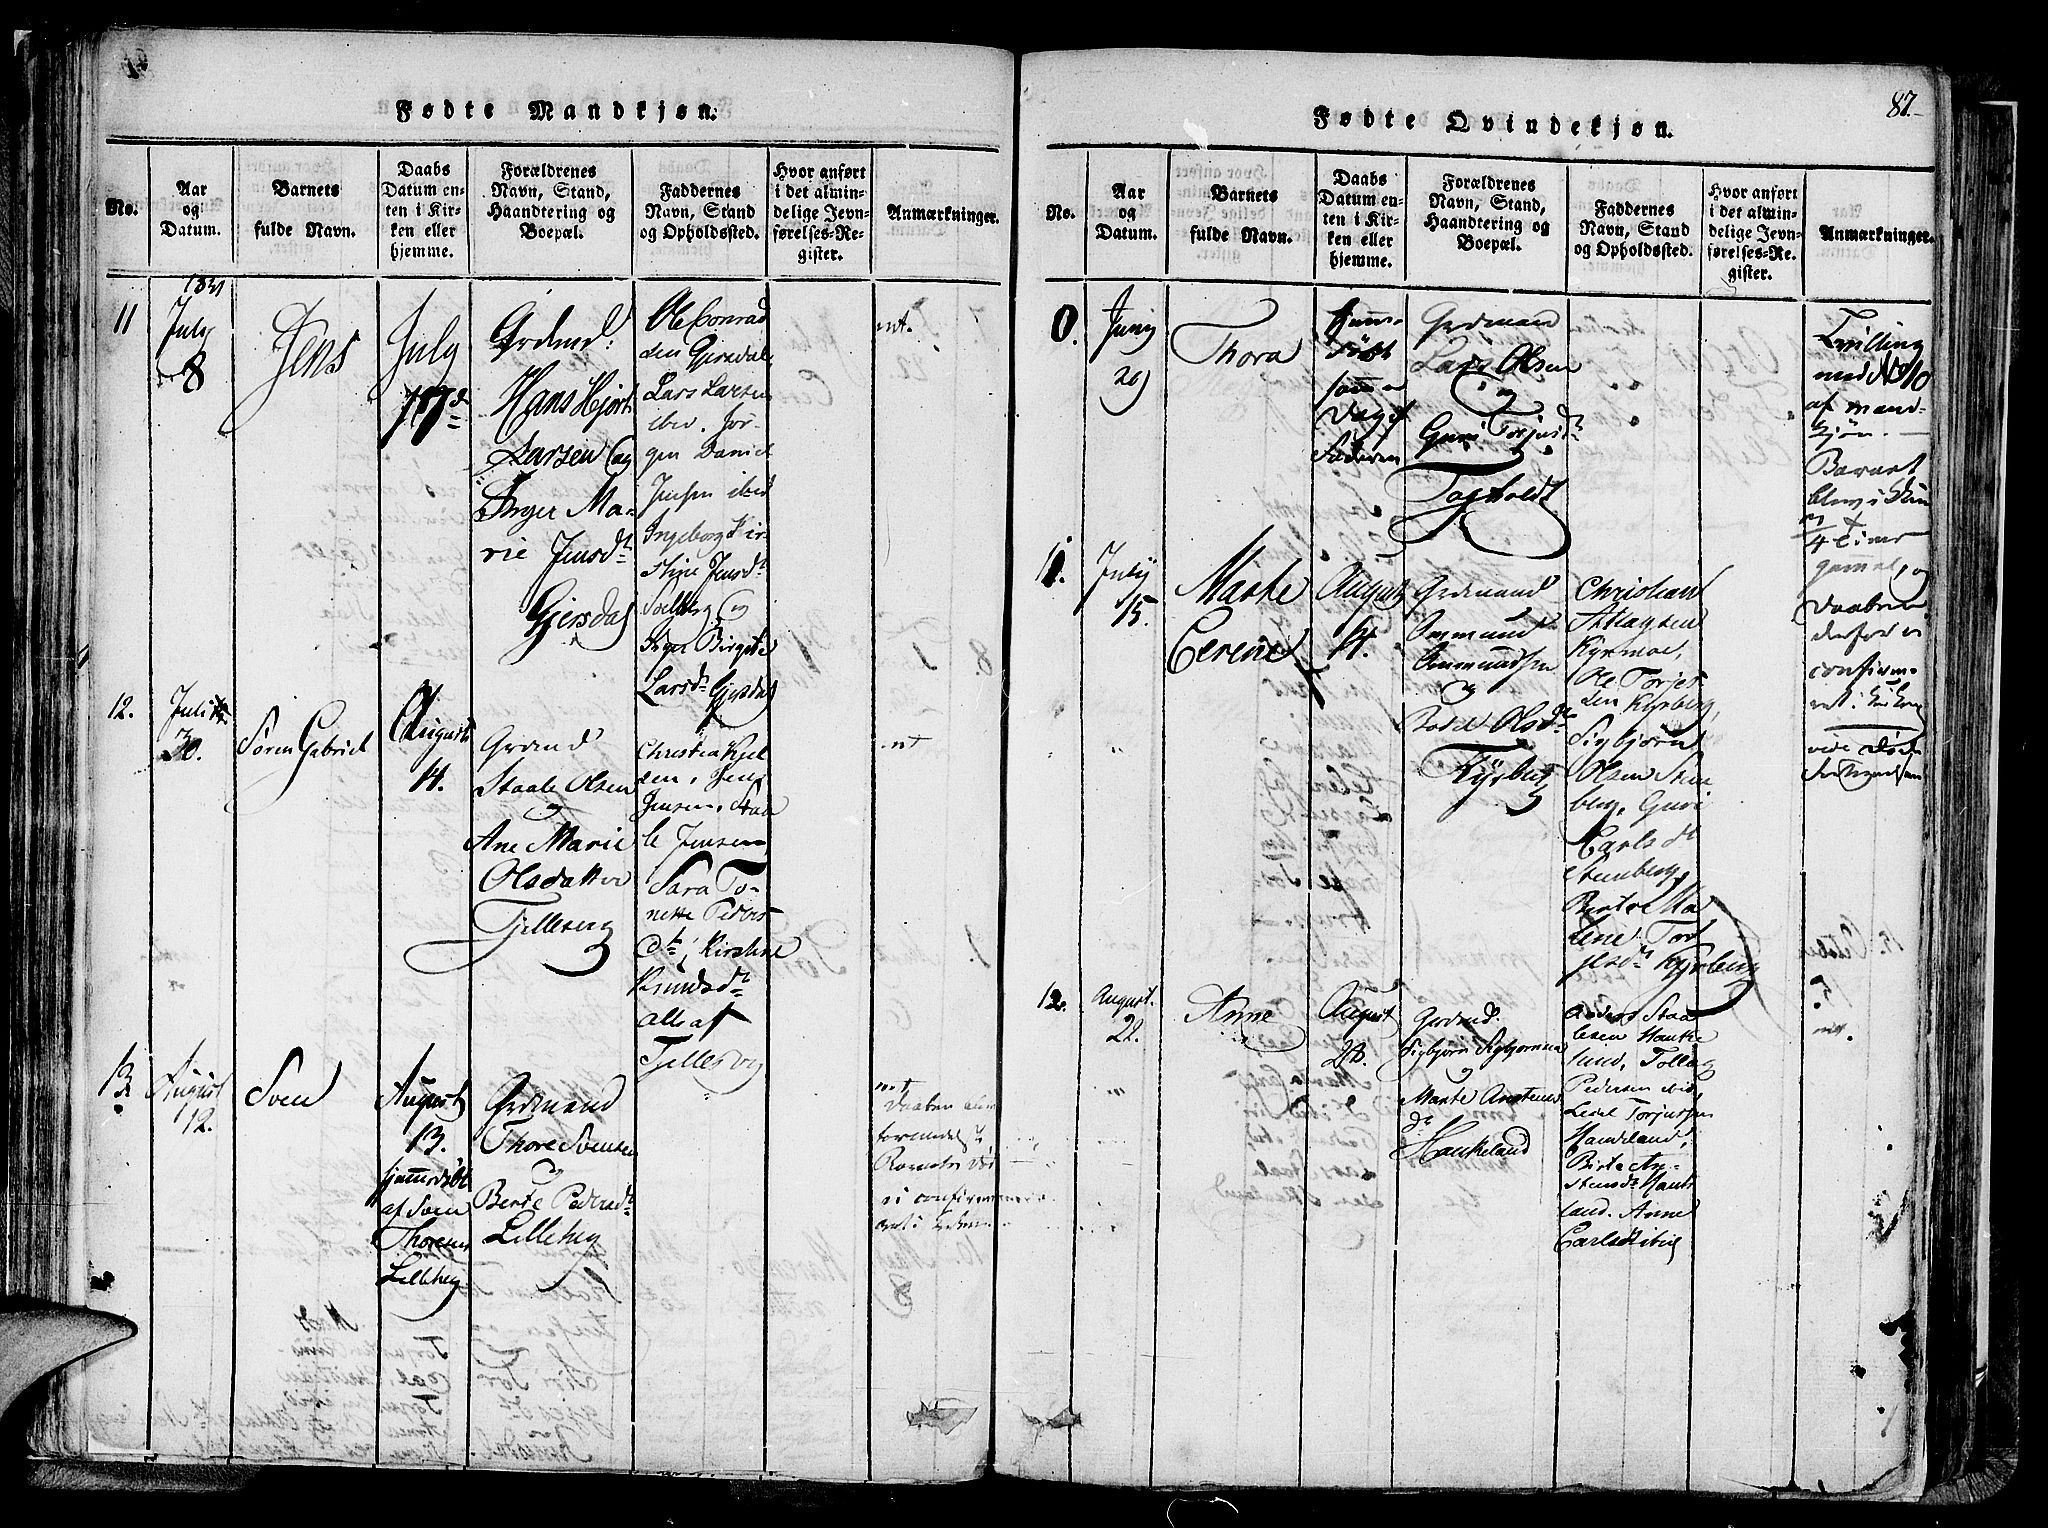 Fødte Mandkjøn.
No.
Aar
og
Datum.
Barnets
fulde Navn.
Daabs
Datum en-
ten i Kir-
ken eller
hjemme.
Forældrenes
Navn, Stand,
Haandtering og
Boepæl.
Faddernes
Navn, Stand
og Opholdssted.
Hvor anført
i det almin-
delige Jevn-
førelses-Re-
gister.
Anmærkninger.
11
1831
July
8
Jens
July
17de
Grdmd:
Hans Hjort
Larsen og
Inger Ma-
rie Jensdtr
Gjersdal
Ole Conrad
sen Gjersdal,
Lars Larsen
ibid. Jør-
gen Daniel
Jensen ibid
Ingeborg Kir-
stine Jensdtr
Solberg og
Inger Birgitte
Larsdr Gjersdal
nt.
12.
Juli
30.
Søren Gabriel
August
14.
Grdmd
Staale Olsen
og
Ane Marie
Olsdatter
Tjellevig
Christen Kjel
sen, Jens
Jensen, Staa
le Jensen,
Sara To-
nette Peders
dtr, Kirstine
Knudsdtr
alle af
Tjellevig
nt
13.
August
12.
Sven
August
13.
hjemmedøbt
af Sven
Thoresen
Lillehey
Grdmand
Thore Svensen
og
Berte Pedersdtr
Lillehey
nt
Daaben
Barnets død
ei confirme
ret i Kirken
Fødte Qvindekjøn.
87.
No.
Aar
og
Datum.
Barnets
fulde Navn.
Daabs
Datum en-
ten i Kir-
ken eller
hjemme.
Forældrenes
Navn, Stand,
Haandtering og
Boepæl.
Faddernes
Navn, Stand
og Opholdssted.
Hvor anført
i det almin-
delige Jevn-
førelses-Re-
gister.
Anmærkninger.
10.
Juny
29
Thora
hjem-
døbt
samme
Dag af
Faderen
Grdmand
Lars Olsen
og
Guri Torjusdtr
Fogholdt
Tvilling
med No 10
af mand-
kjøn.
Barnet
blev i Kun
4 timer
gamel, og
Daaben
derfor ei
confirme-
ret i Kirken
vide Døde
11.
July
15.
Marte
Cerene
August
14.
Grdmand
Ommund
Ommundsen
og
Bodil Olsdtr
Kyrberg
Christian
Aslagsen
Kyrmoe,
Ole Torjes
sen Kyrberg,
Sigbjørn
Olsen Sten
berg, Guri
Carlsdtr
Stenberg,
Berte Ma
lene Tor
jesdtr Kyrberg
12.
August.
22.
Anne
August
28.
Grdmd.
Sigbjørn Sigbjørnsen
og
Marte Aanstens
dtr
Haukeland
Anders Staa
lesen Hauke
land, Tollag
Pedersen ibid
Ledel Torjussen
Haukeland,
Birte An-
stensdtr Hauke
land. Anne
Carlsdtr ibid
nt.